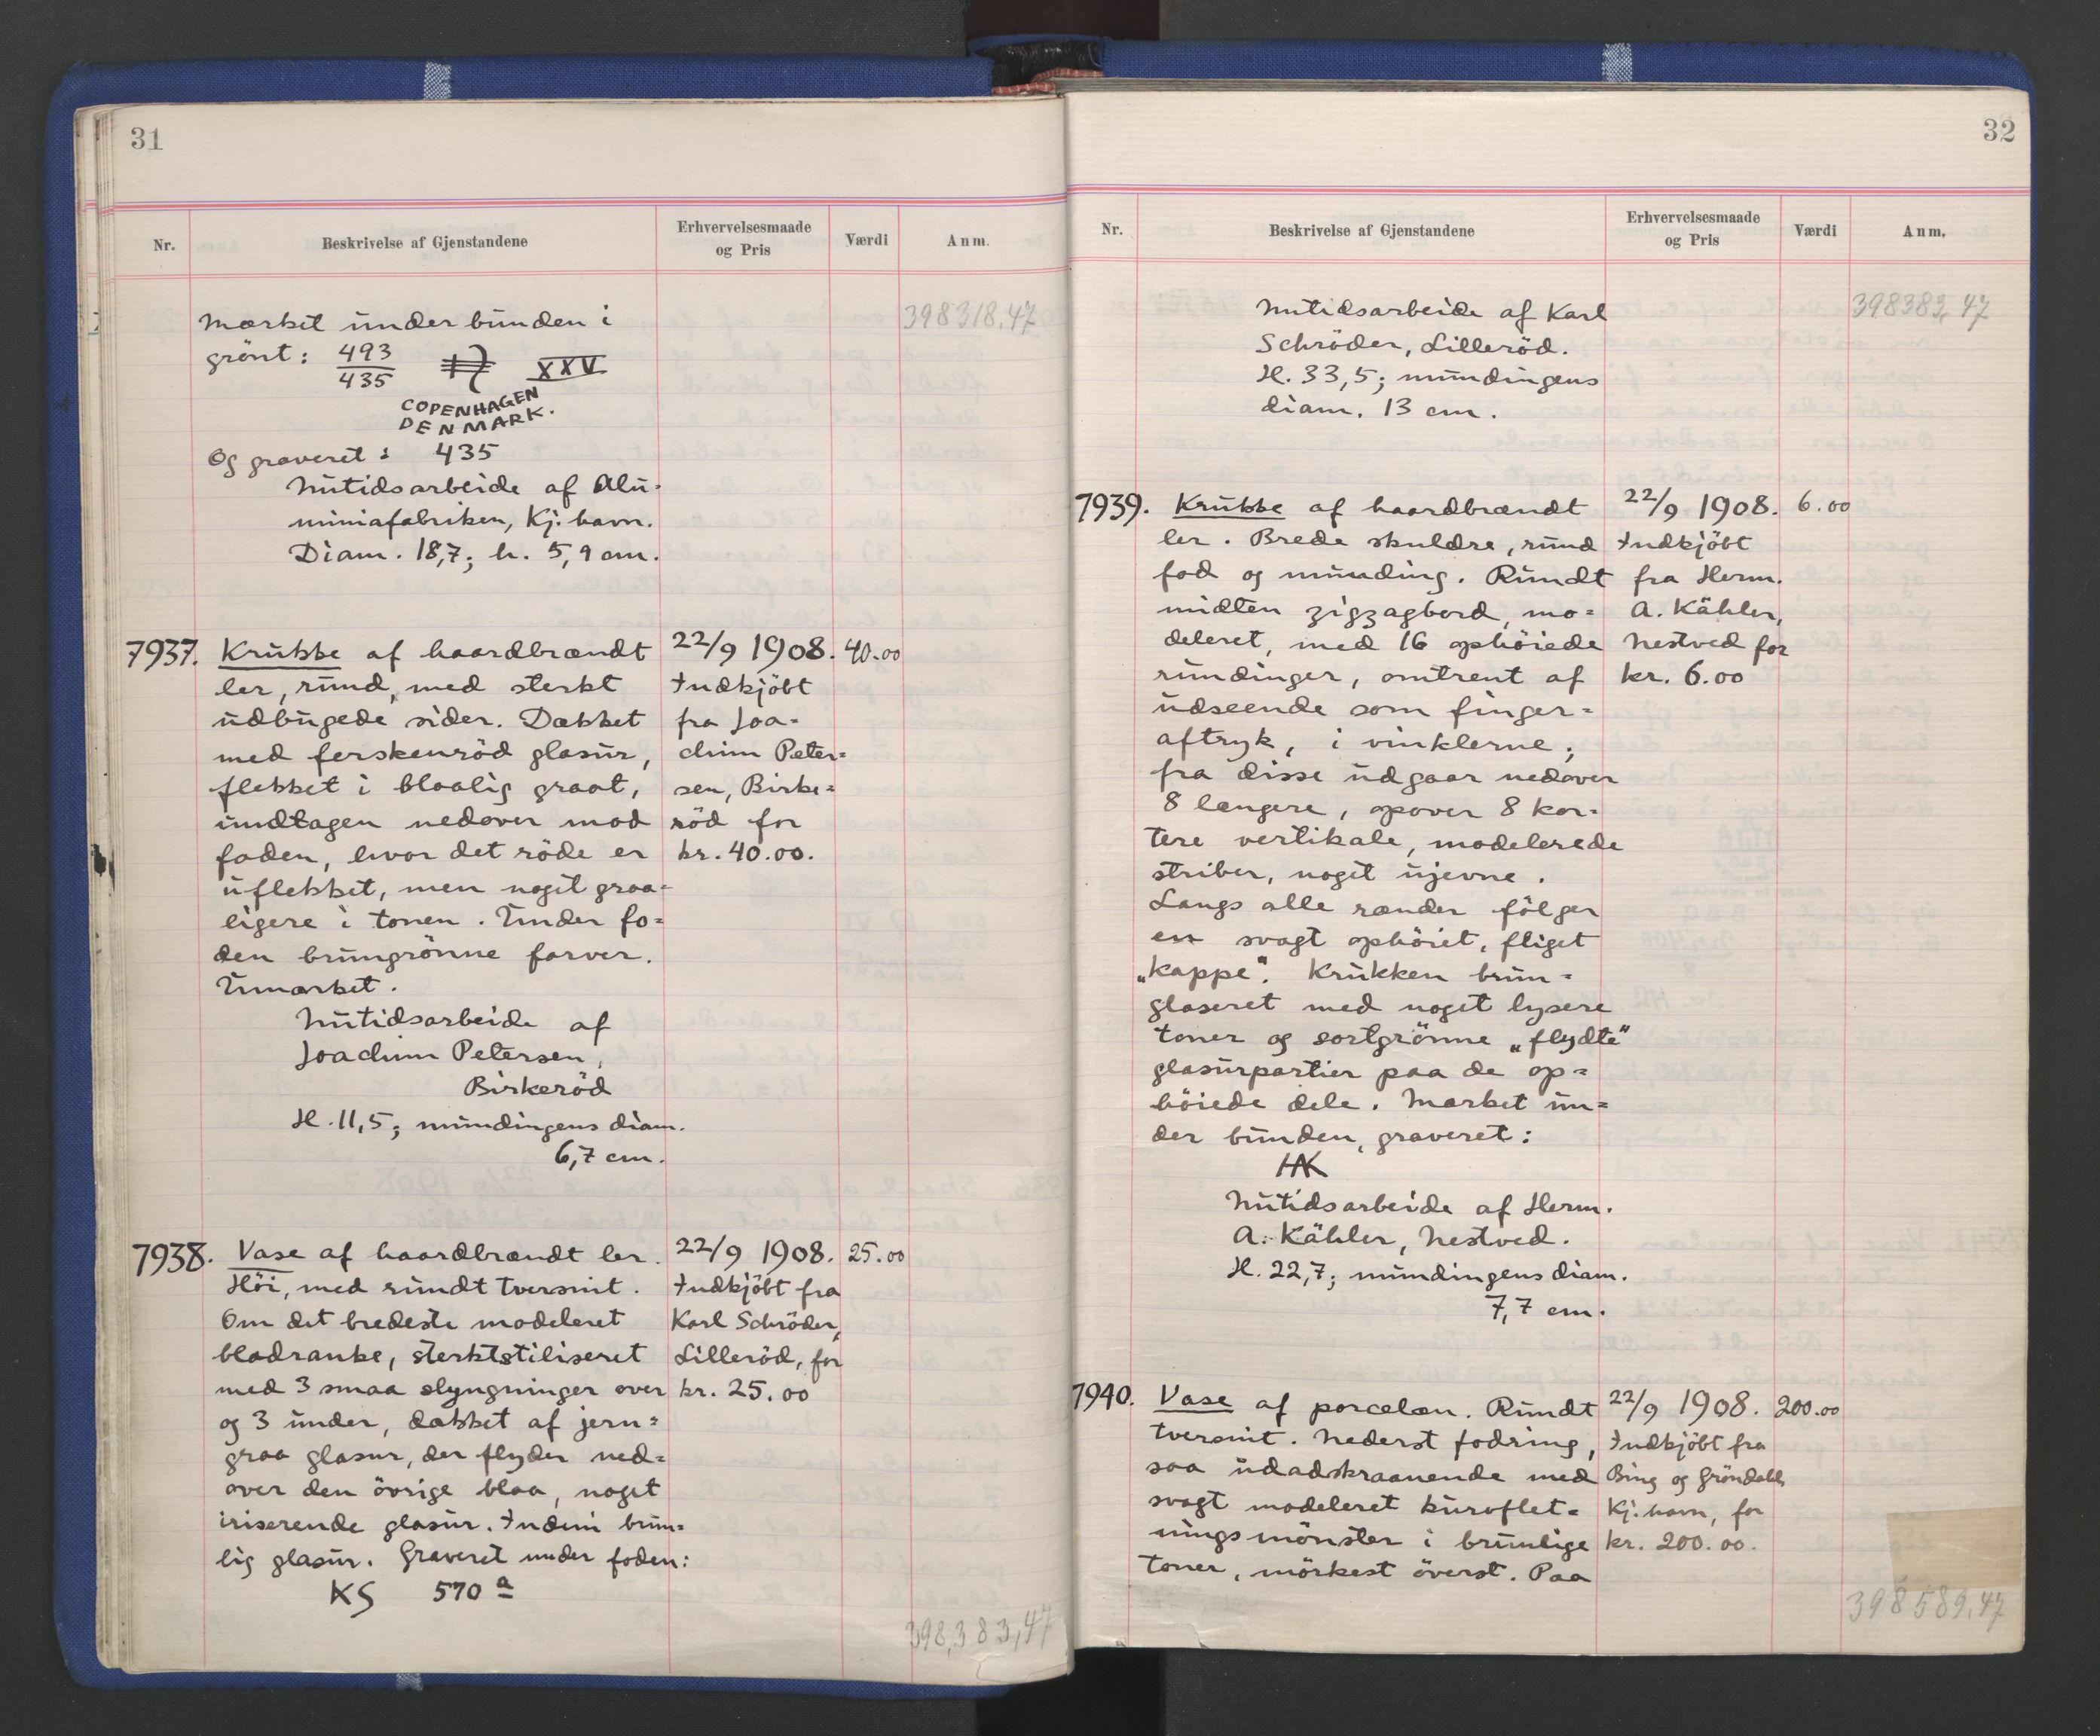 31
Nr.
Beskrivelse af Gjenstandene
Erhvervelsesmaade
og Pris
Værdi
Anm.
398318,47
Mærket under bunden i
grönt: 493
435
XXV
COPENHAGEN
DENMARK.
Og graveret: 435
Nutidsarbeide af Alu-
miniafabriken, Kj.havn.
Diam. 18,7; h. 5,9 cm.
7937. Krukke af haardbrændt
ler, rund, med sterkt
udbugede sider. Dækket
med ferskenröd glasur,
flekket i blaalig graat,
undtagen nedover mod
foden, hvor det röde er
uflekket, men noget graa-
ligere i tonen. Under fo-
den brungrönne farver.
Umærket.
Nutidsarbeide af
Joachim Petersen,
Birkeröd
H. 11,5; mundingens diam.
6,7 cm.
22/9 1908.
Indkjöbt
fra Joa-
chim Peter-
sen, Birke-
röd for
kr. 40.00.
40.00
7938. Vase af haardbrændt ler.
Höi, med rundt tversnit.
Om det bredeste modeleret
bladranke, sterktstiliseret
med 3 smaa slyngninger over
og 3 under, dækket af jern-
graa glasur, der flyder ned-
over den övrige blaa, noget
iriserende glasur. Indeni brun-
lig glasur. Graveret under foden:
KS 570 a
22/9 1908.
Indkjöbt fra
Karl Schröder,
Lilleröd, for
kr. 25.00
25.00
398,383,47
32
Nr.
Beskrivelse af Gjenstandene
Erhvervelsesmaade
og Pris
Værdi
Anm.
398383,47
Nutidsarbeide af Karl
Schröder, Lilleröd.
H. 33,5; mundingens
diam. 13 cm.
7939. Krukke af haardbrændt
ler. Brede skuldre, rund
fod og munding. Rundt
midten zigzagbord, mo-
deleret, med 16 ophöiede
rundinger, omtrent af
udseende som finger-
aftryk, i vinklerne;
fra disse udgaar nedover
8 længere, opover 8 kor-
tere vertikale, modelerede
striber, noget ujevne.
Langs alle rænder fölger
en svagt ophöiet, fliget
„kappe". Krukken brun-
glaseret med noget lysere
toner og sortgrönne „flydte"
glasurpartier paa de op-
höiede dele. Mærket un-
der bunden, graveret:
HAK
Nutidsarbeide af Herm.
A. Kähler, Nestved.
H. 22,7; mundingens diam.
7,7 cm.
22/9 1908.
Indkjöbt
fra Herm.
A. Kähler,
Nestved for
kr. 6.00
6.00
7940. Vase af porcelæn. Rundt
tversnit. Nederst fodring,
saa udadskraanende med
svagt modeleret kurvflet-
ningsmönster i brunlige
toner, mörkest överst. Paa
22/9 1908.
Indkjöbt fra
Bing og Gröndahl,
Kj.havn, for
kr. 200.00.
200.00
398589,47